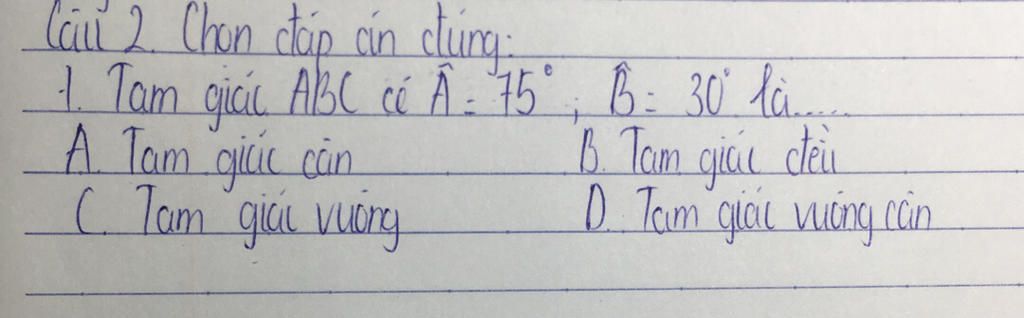 Câu 2. Chọn đáp án đúng:
1. Tam giác ABC có Â = 75°; B̂ = 30° là.....
A. Tam giác cân B. Tam giác đều
C. Tam giác vuông D. Tam giác vuông cân